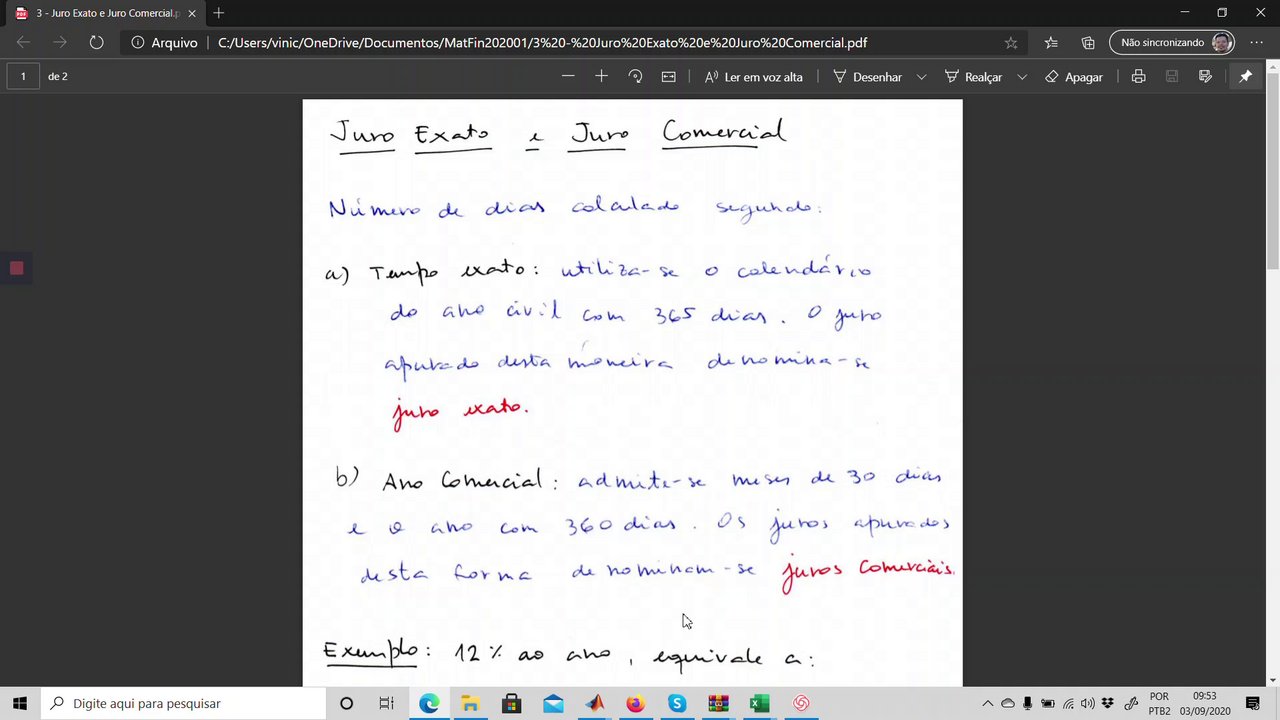 3 - Juro Exato e Juro Comercial.p
Arquivo | C:/Users/vinic/OneDrive/Documentos/MatFin202001/3%20-%20Juro%20Exato%20e%20Juro%20Comercial.pdf
Não sincronizando
1 de 2
Ler em voz alta
Desenhar
Realçar
Apagar
Juro Exato e Juro Comercial
Número de dias calculado segundo:
a) Tempo exato: utiliza-se o calendário
do ano civil com 365 dias. O juro
apurado desta maneira denomina-se
juro exato.
b) Ano Comercial: admite-se meses de 30 dias
e o ano com 360 dias. Os juros apurados
desta forma denominam-se juros comerciais.
Exemplo: 12% ao ano, equivale a:
Digite aqui para pesquisar
POR
PTB2
09:53
03/09/2020